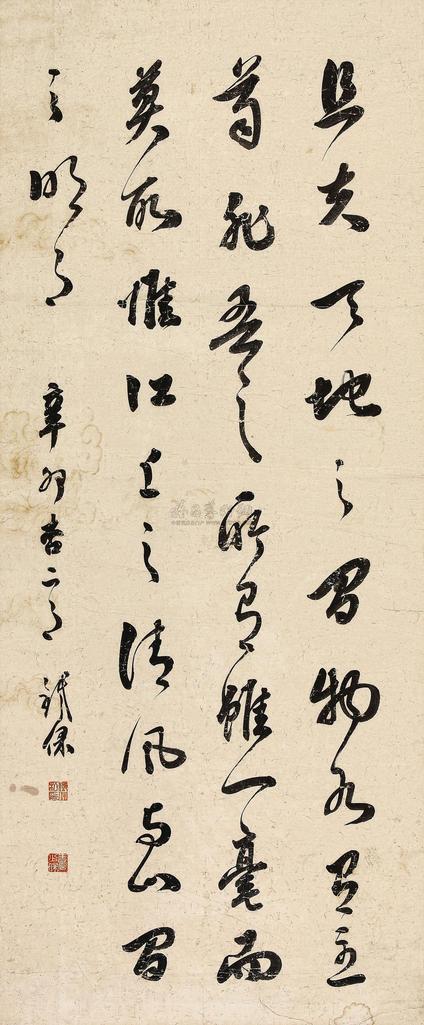 且夫天地之間物各有主
苟非吾之所有雖一毫而
莫取惟江上之清風与山間
之明月
辛卯春二月 鐵保